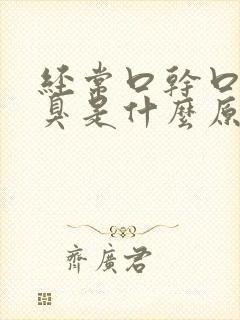 經常口幹口
臭是什麼原
齊廣君